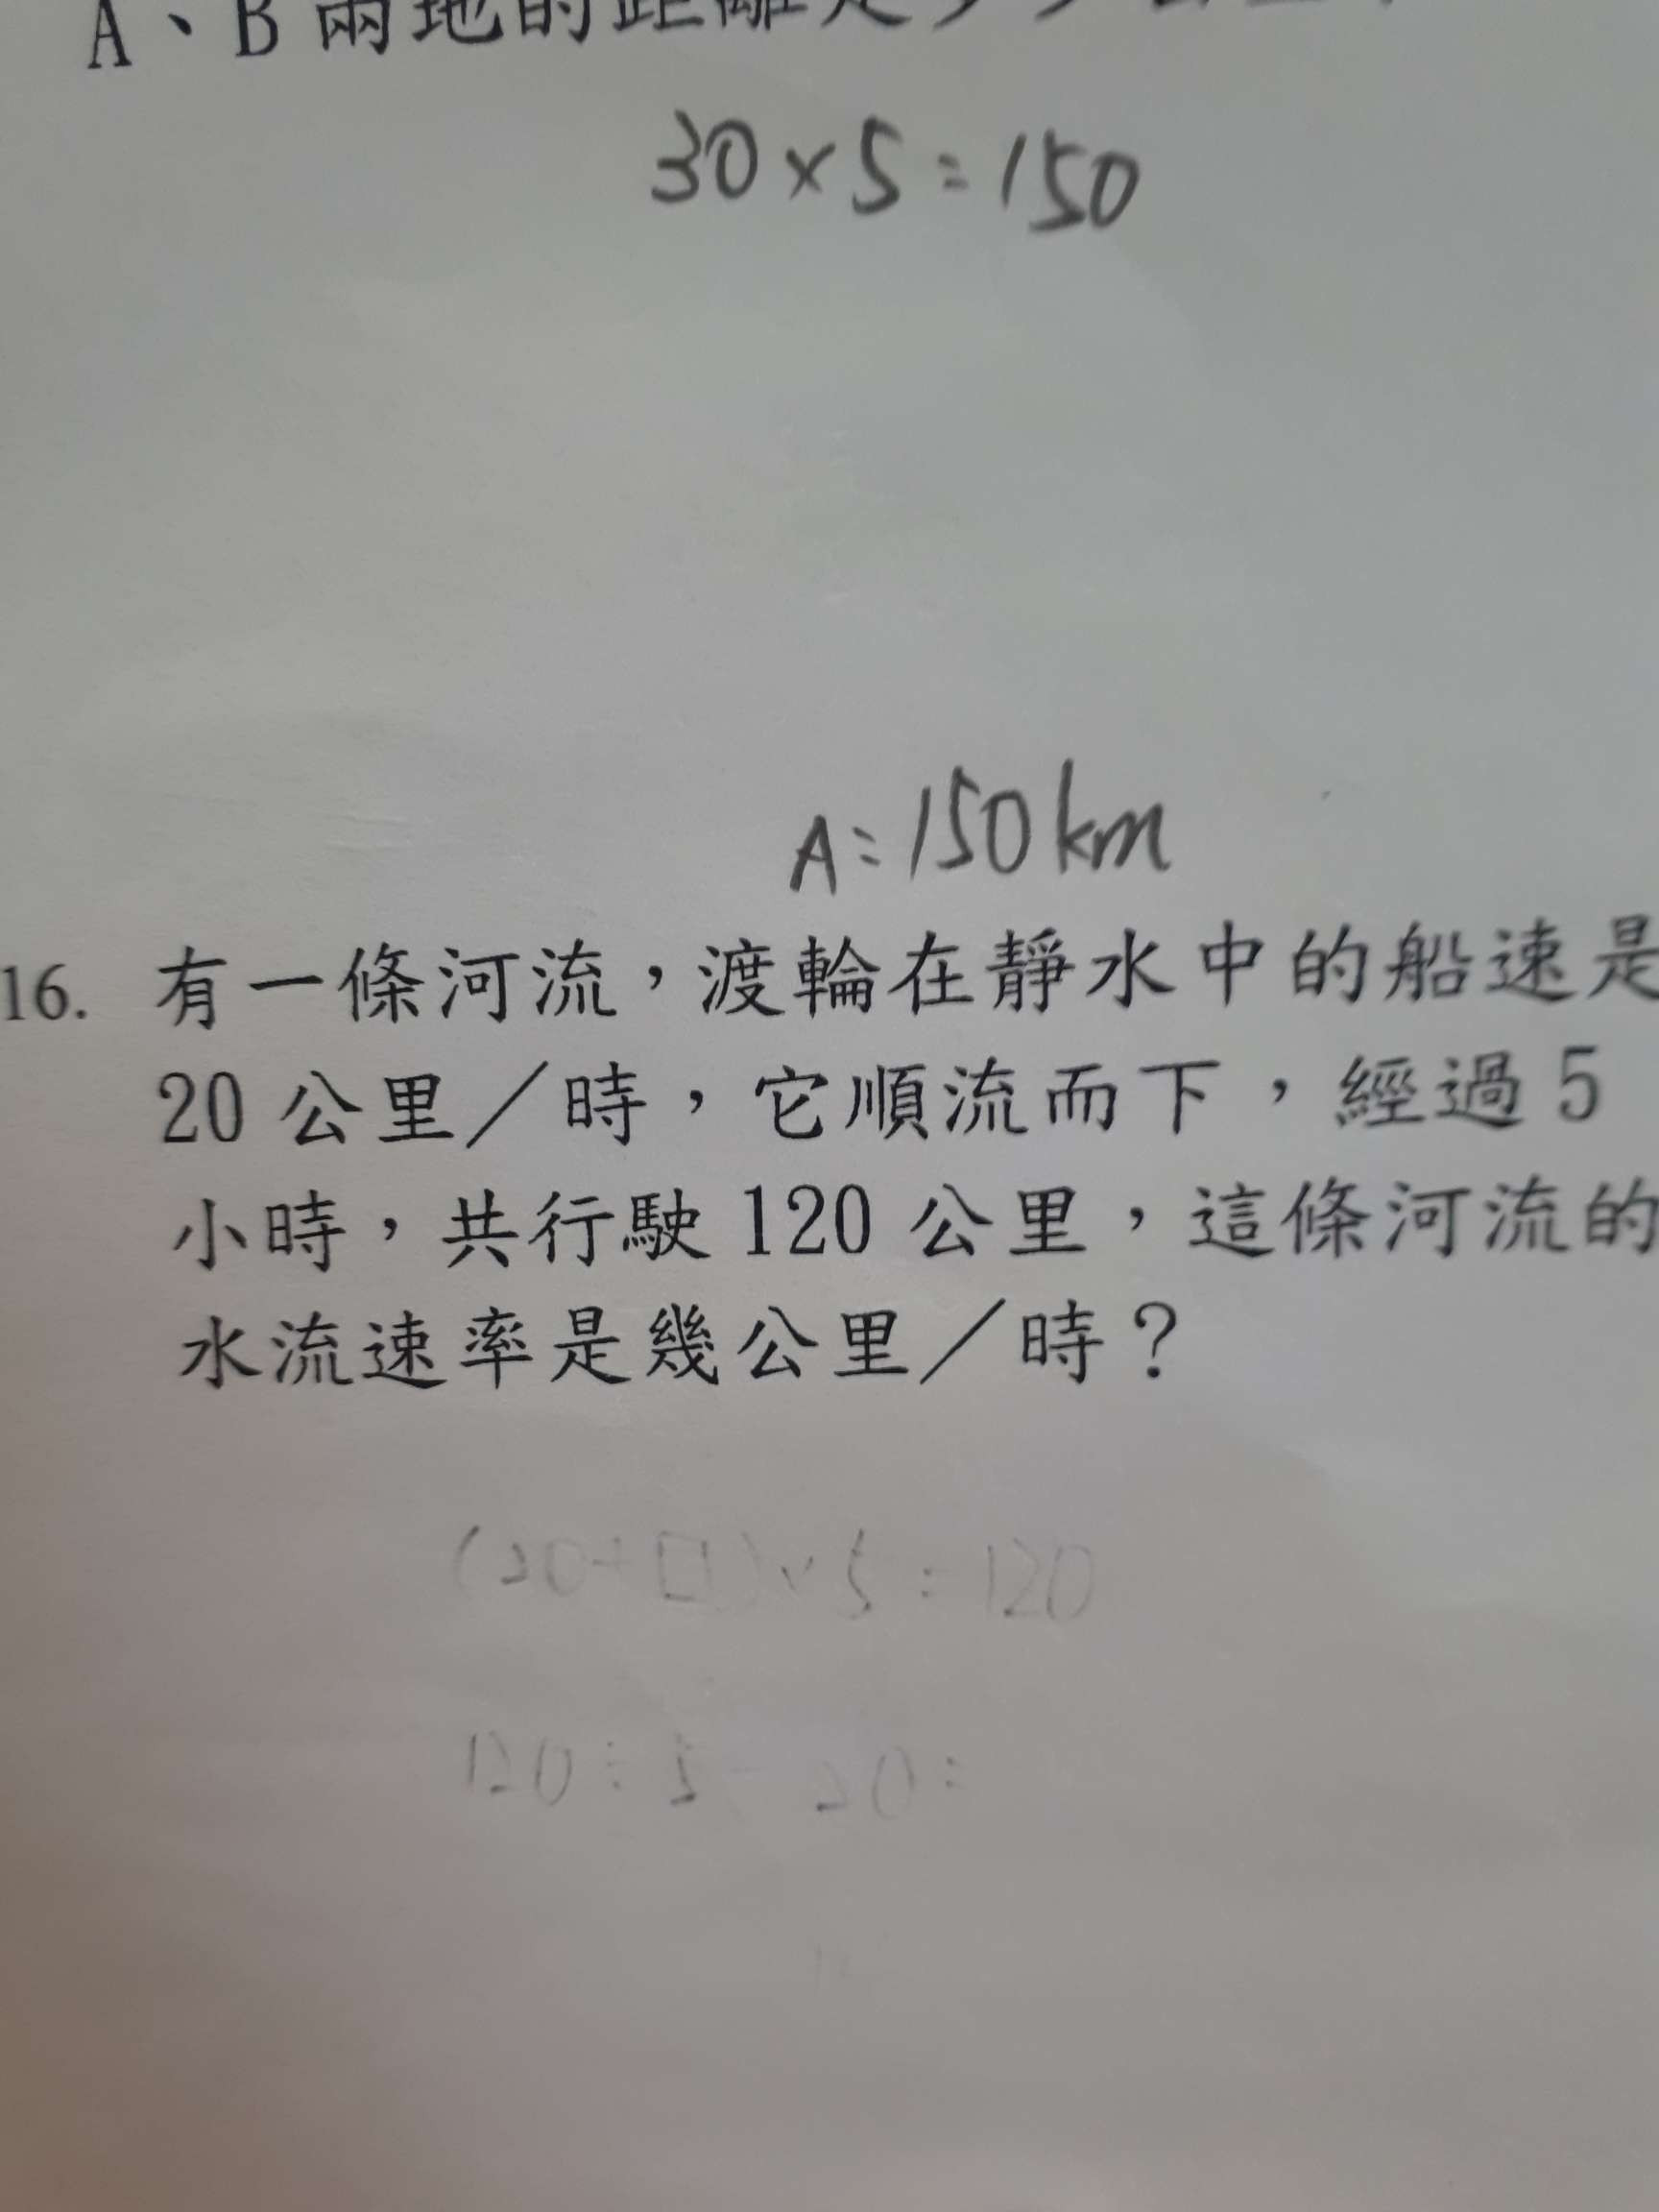 A、B 兩地的距離是多少公里?
30×5=150
A=150km
16. 有一條河流,渡輪在靜水中的船速是
20 公里/時,它順流而下,經過 5
小時,共行駛 120 公里,這條河流的
水流速率是幾公里/時?
(20+□)×5=120
120÷5-20=